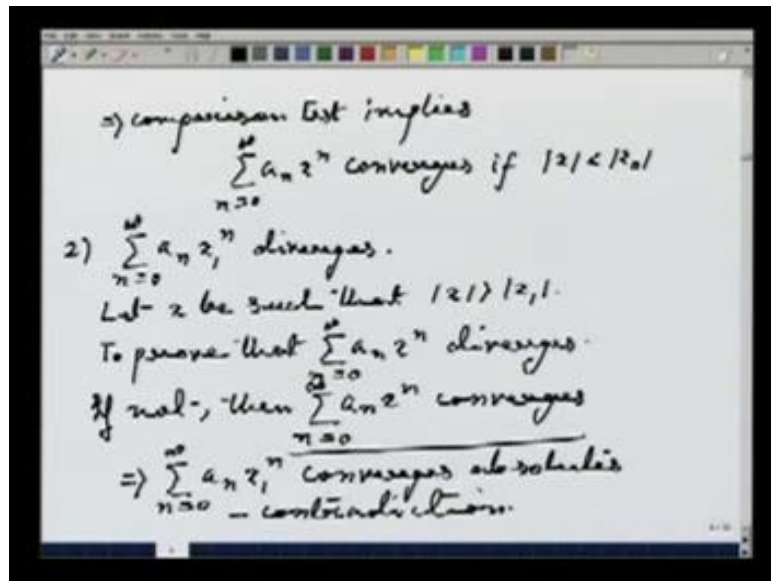 ⇒ comparison test implies
∑_{n=0}^{∞} a_n z^n converges if |z| < |z_0|
2) ∑_{n=0}^{∞} a_n z_1^n diverges.
Let z be such that |z| > |z_1|.
To prove that ∑_{n=0}^{∞} a_n z^n diverges.
If not, then ∑_{n=0}^{∞} a_n z^n converges
⇒ ∑_{n=0}^{∞} a_n z_1^n converges absolutely
– contradiction.